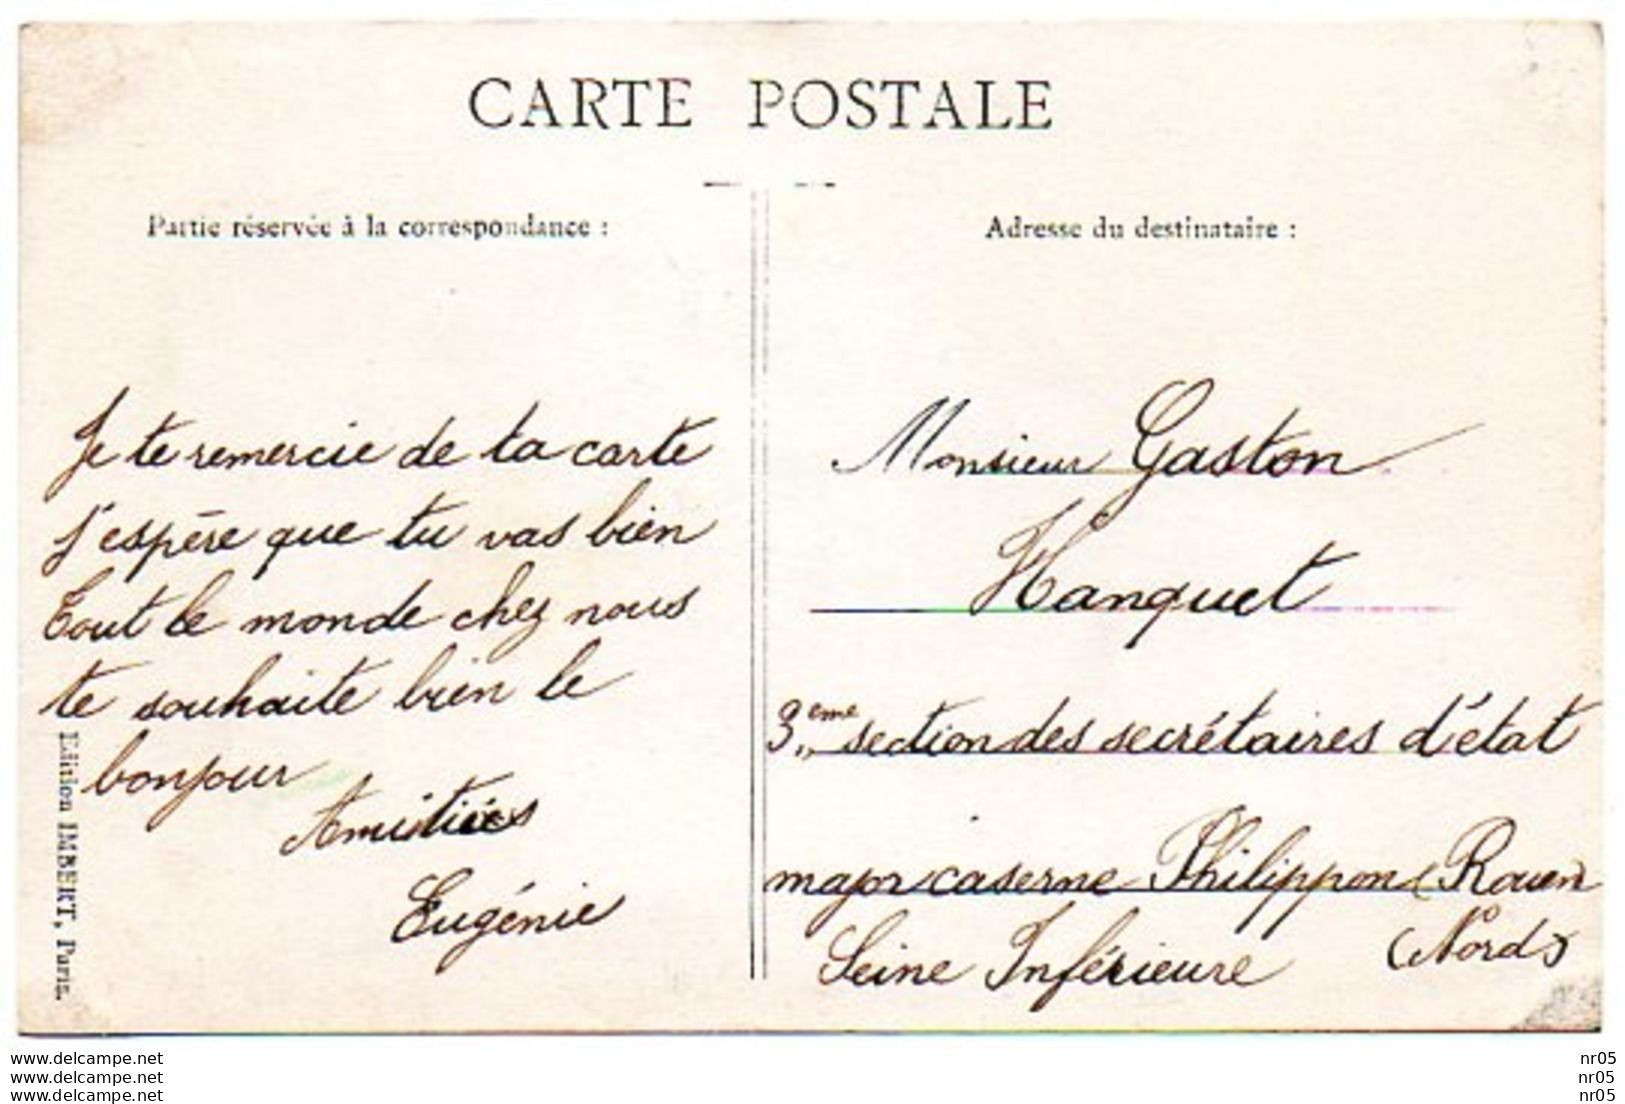 CARTE POSTALE
Partie réservée à la correspondance :
Je te remercie de ta carte
j'espère que tu vas bien
Tout le monde chez nous
te souhaite bien le
bonjour
Amitiées
Eugénie
Edition IMBERT, Paris.
Adresse du destinataire :
Monsieur Gaston
Hanquet
3eme section des secrétaires d'état
major caserne Philippon Rouen
(Nord)
Seine Inférieure
www.delcampe.net
www.delcampe.net
www.delcampe.net
nr05
nr05
nr05